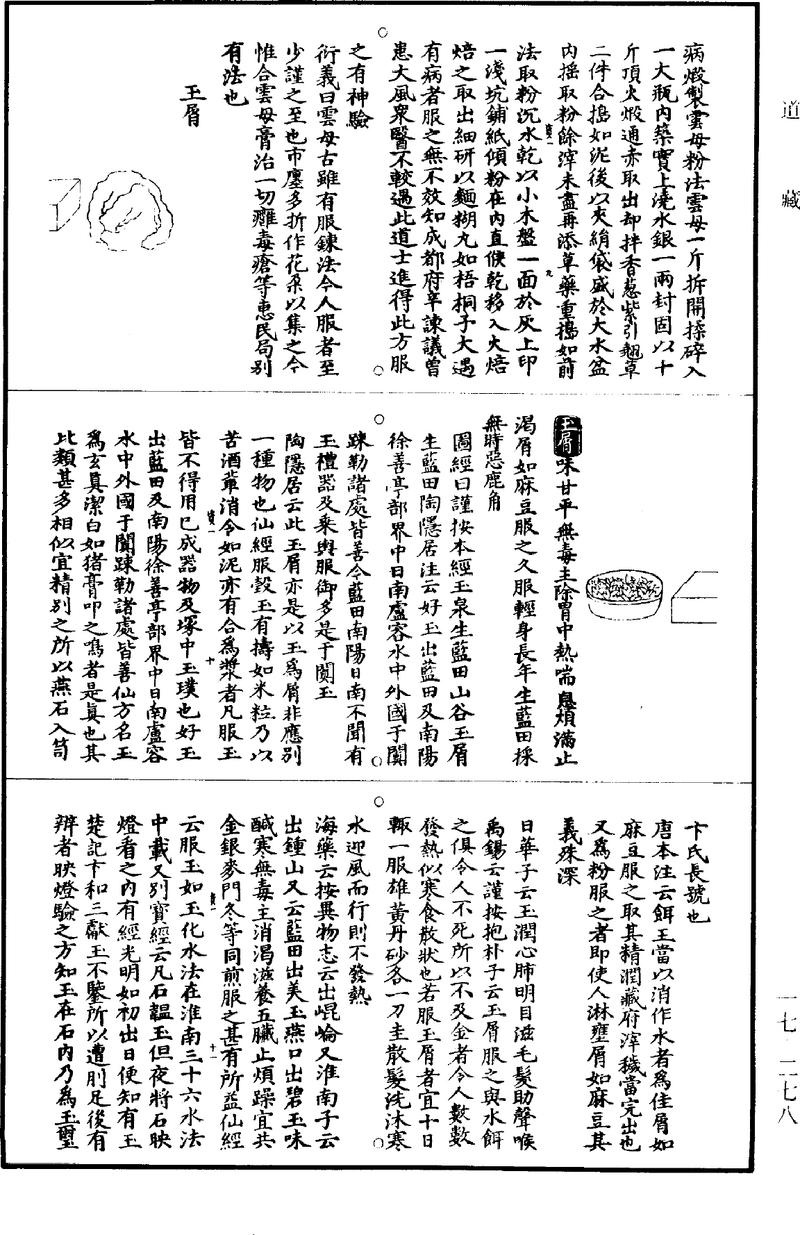 道藏
病煅製雲母粉法雲母一斤拆開揉碎入
一大瓶內築實上澆水銀一兩封固以十
斤頂火煅通赤取出却拌香葱紫引翹草
二件合搗如泥後以夾絹袋盛於大水盆
內搖取粉餘滓未盡再添草藥重搗如前
法取粉沉水乾以小木盤一面於灰上印
一淺坑鋪紙傾粉在內直候乾移入火焙
焙之取出細研以麵糊丸如梧桐子大遇
有病者服之無不效知成都府辛諫議曾
患大風衆醫不較遇此道士進得此方服
之有神驗
衍義曰雲母古雖有服鍊法今人服者至
少謹之至也市廛多折作花朵以集之今
惟合雲母膏治一切癰毒瘡等惠民局別
有法也
玉屑
玉屑味甘平無毒主除胃中熱喘息煩滿止
渴屑如麻豆服之久服輕身長年生藍田採
無時惡鹿角
圖經曰謹按本經玉泉生藍田山谷玉屑
生藍田陶隱居注云好玉出藍田及南陽
徐善亭部界中日南盧容水中外國于闐
踈勒諸處皆善今藍田南陽日南不聞有
玉禮器及乘輿服御多是于闐玉
陶隱居云此玉屑亦是以玉爲屑非應別
一種物也仙經服瑴玉有擣如米粒乃以
苦酒軰消令如泥亦有合爲漿者凡服玉
皆不得用已成器物及塚中玉璞也好玉
出藍田及南陽徐善亭部界中日南盧容
水中外國于闐踈勒諸處皆善仙方名玉
爲玄真潔白如猪膏叩之鳴者是真也其
比類甚多相似宜精別之所以燕石入笥
卞氏長號也
唐本注云餌玉當以消作水者爲佳屑如
麻豆服之取其精潤藏府滓穢當完出也
又爲粉服之者即使人淋壅屑如麻豆其
義殊深
日華子云玉潤心肺明目滋毛髮助聲喉
禹錫云謹按抱朴子云玉屑服之與水餌
之俱令人不死所以不及金者令人數數
發熱似寒食散狀也若服玉屑者宜十日
輒一服雄黃丹砂各一刀圭散髮洗沐寒
水迎風而行則不發熱
海藥云按異物志云出崐崘又淮南子云
出鍾山又云藍田出美玉燕口出碧玉味
鹹寒無毒主消渴滋養五臟止煩躁宜共
金銀麥門冬等同煎服之甚有所益仙經
云服玉如玉化水法在淮南三十六水法
中載又別寶經云凡石韞玉但夜將石映
燈看之內有經光明如初出日便知有玉
楚記卞和三獻玉不鑒所以遭刖足後有
辨者映燈驗之方知玉在石內乃爲玉璽
一七·二七八